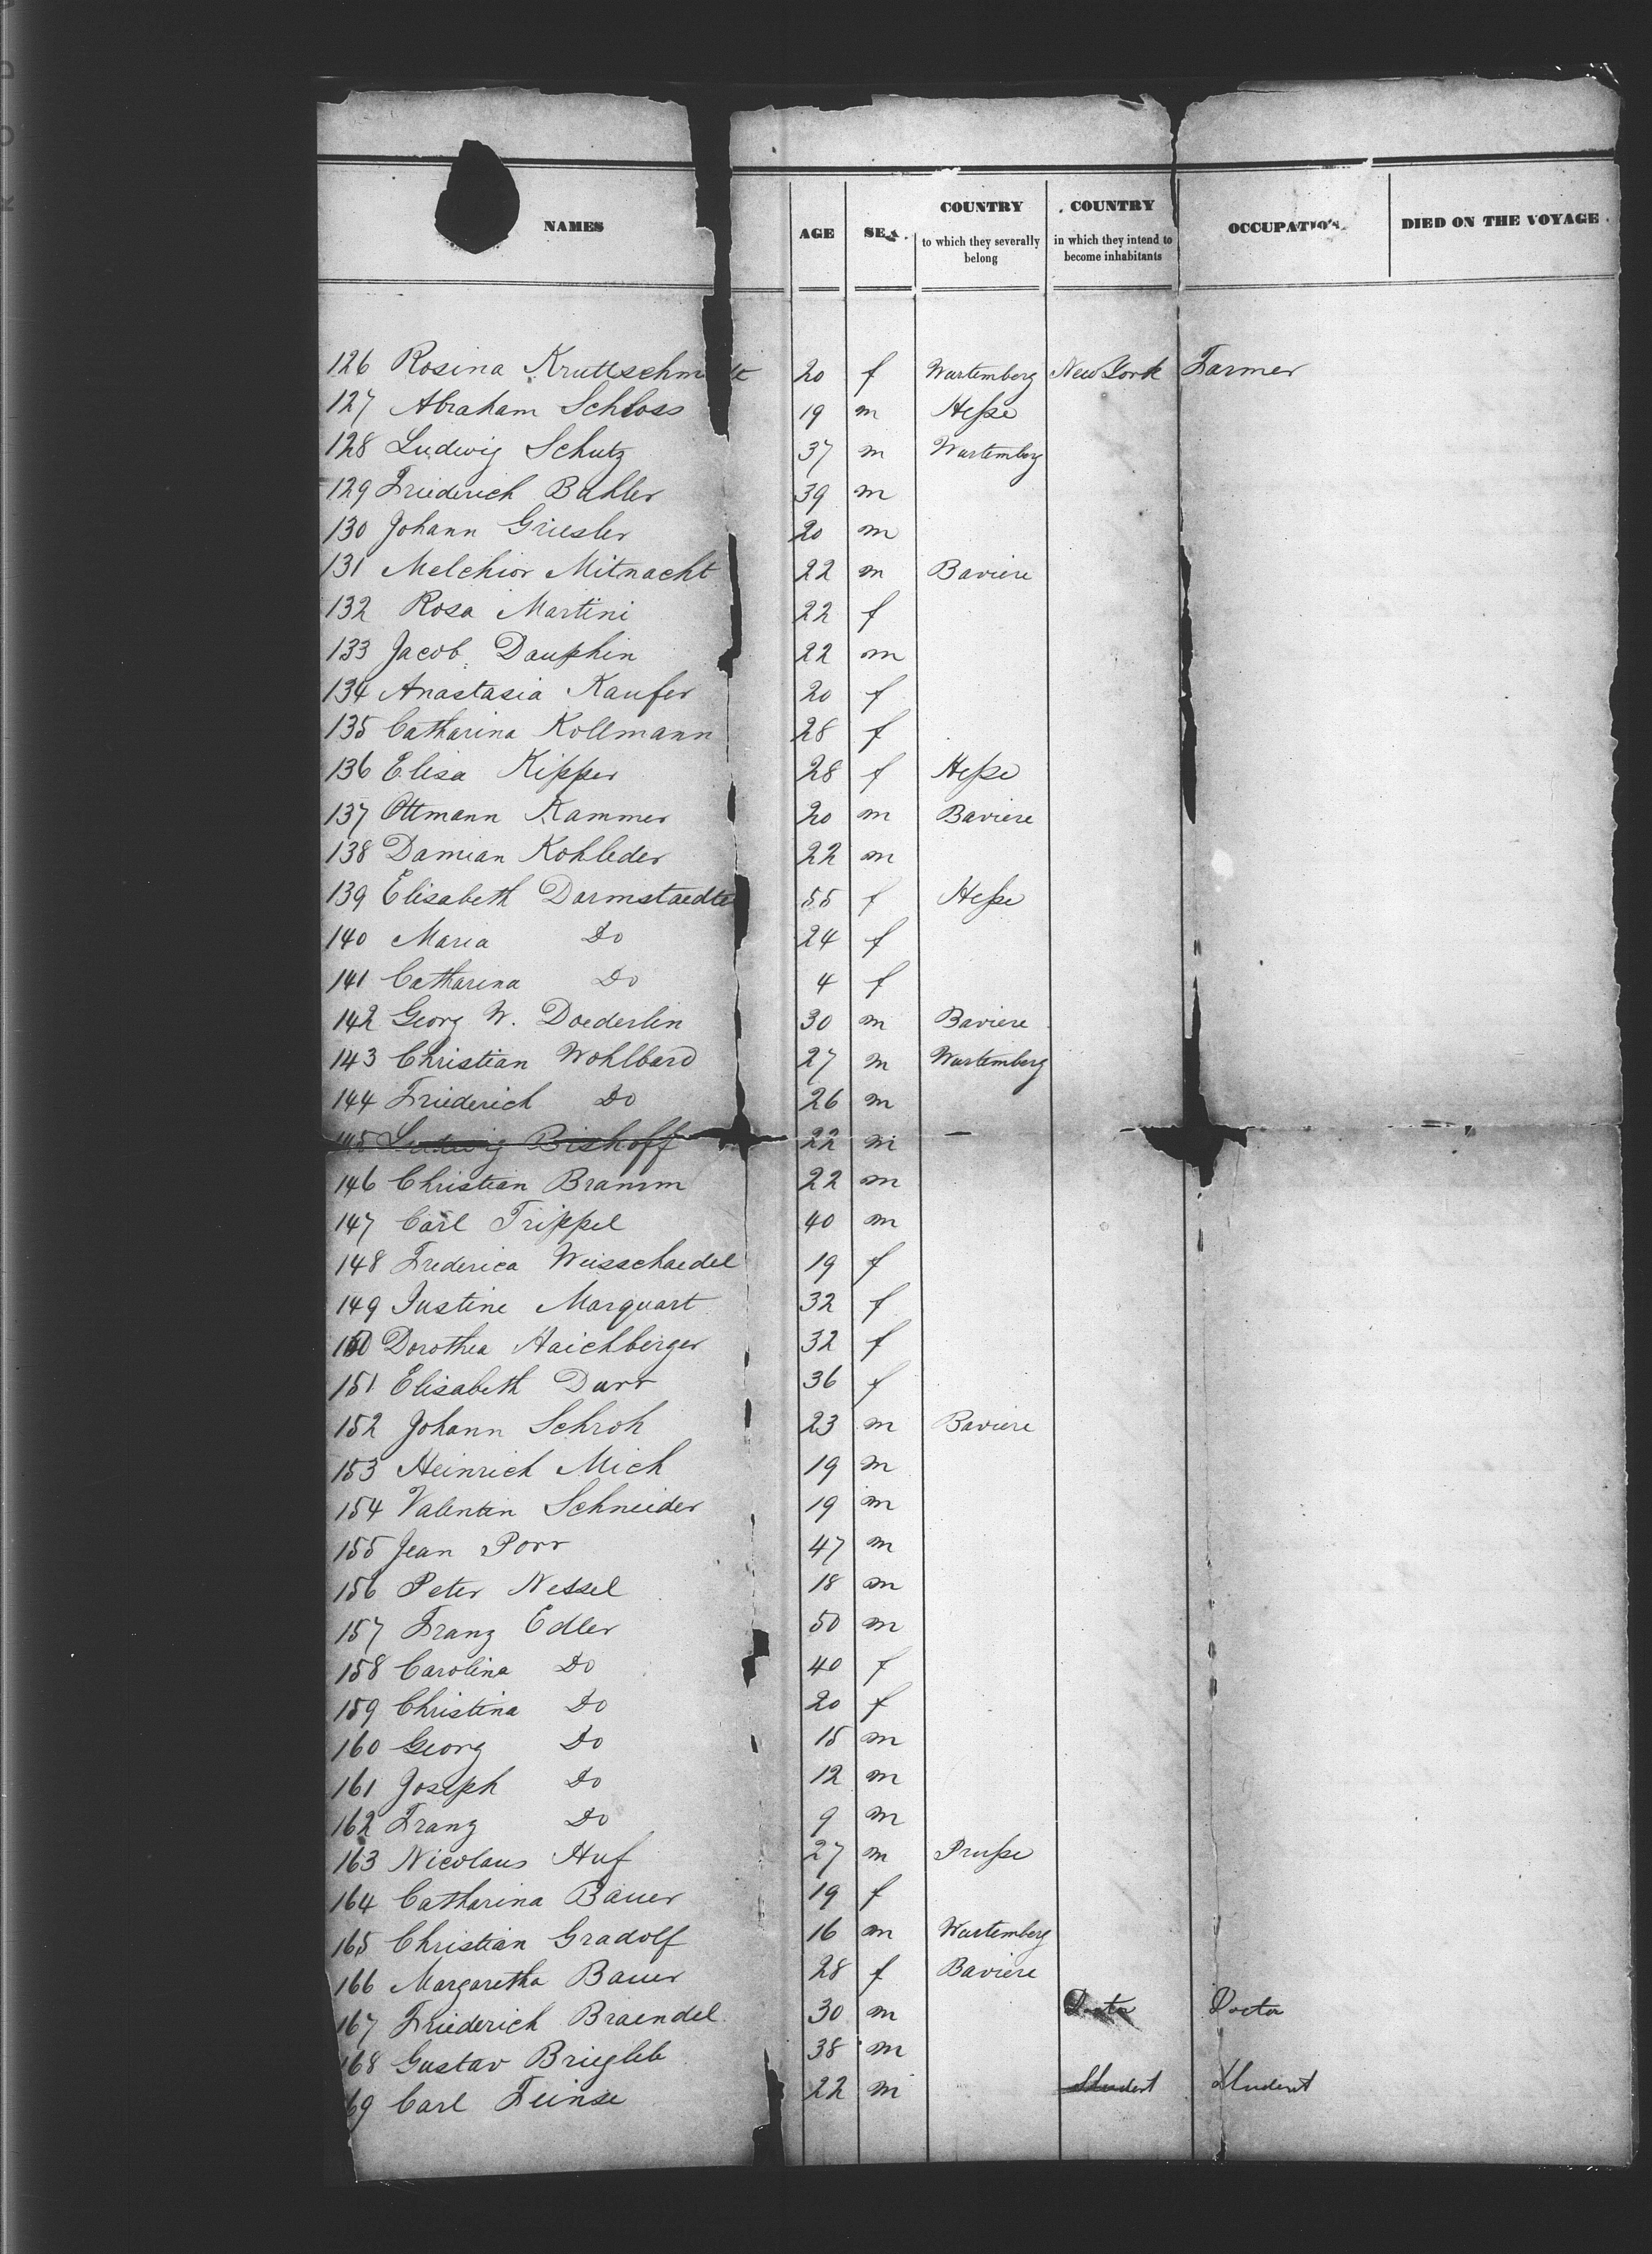 NAMES AGE SEX COUNTRY to which they severally belong COUNTRY in which they intend to become inhabitants OCCUPATION DIED ON THE VOYAGE
126 Rosina Kruttschm 20 f Wurtemberg New York Farmer
127 Abraham Schloss 19 m Hesse
128 Ludwig Schutz 37 m Wurtemberg
129 Friederich Buhler 39 m
130 Johann Griesler 20 m
131 Melchior Mitnacht 22 m Baviere
132 Rosa Martini 22 f
133 Jacob Dauphin 22 m
134 Anastasia Kaufer 20 f
135 Catharina Kollmann 28 f
136 Elisa Kipper 28 f Hesse
137 Ottmann Kammer 20 m Baviere
138 Damian Kohleder 22 m
139 Elisabeth Darmstaedte 55 f Hesse
140 Maria Do 24 f
141 Catharina Do 4 f
142 Georg W. Doederlin 30 m Baviere
143 Christian Wohlbard 27 m Wurtemberg
144 Friederich Do 26 m
145 Ludwig Bishoff 22 m
146 Christian Bramm 22 m
147 Carl Trippel 40 m
148 Frederica Weisschaedel 19 f
149 Justine Marquart 32 f
150 Dorothea Haichberger 32 f
151 Elisabeth Durr 36 f
152 Johann Schroh 23 m Baviere
153 Heinrich Mich 19 m
154 Valentin Schneider 19 m
155 Jean Porr 47 m
156 Peter Nessel 18 m
157 Franz Edler 50 m
158 Carolina Do 40 f
159 Christina Do 20 f
160 Georg Do 15 m
161 Joseph Do 12 m
162 Franz Do 9 m
163 Nicolaus Huf 27 m Prusse
164 Catharina Bauer 19 f
165 Christian Gradolf 16 m Wurtemberg
166 Margaretha Bauer 28 f Baviere
167 Friederich Braendel 30 m Doctor Doctor
168 Gustav Briegleb 38 m
69 Carl Feinse 22 m Student Student